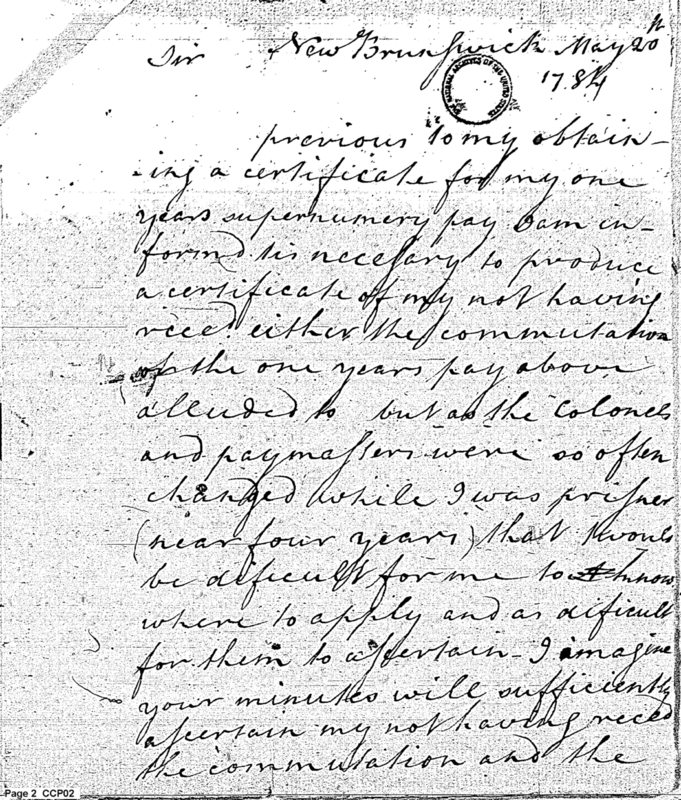 New Brunswick May 20
Sir 1784
THE NATIONAL ARCHIVES OF THE UNITED STATES
previous to my obtain-
-ing a certificate for my one
years supernumery pay I am in-
formd tis necessary to produce
a certificate of my not having
recd. either the commutation
or the one years pay above
alluded to but as the Colonels
and paymasters were so often
changed while I was prisner
(near four years) that twould
be dificult for me to know
where to apply and as dificult
for them to ascertain - I imagine
your minutes will sufficiently
ascertain my not having recd
the commutation and the
Page 2 CCP02